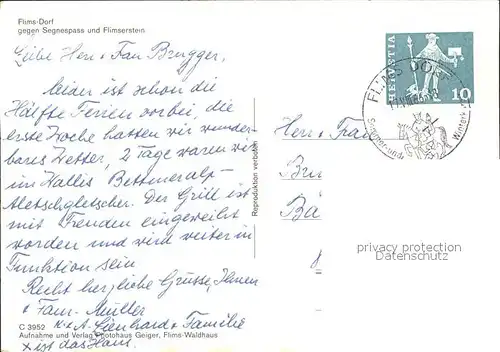 Flims-Dorf
gegen Segnespass und Flimserstein
Liebe Herr + Frau Brugger,
leider ist schon die
Hälfte Ferien vorbei, die
erste Woche hatten wir wunder-
bares Wetter, 2 Tage waren wir
im Wallis Bettmeralp-
Aletschgletscher. Der Grill ist
mit Freuden eingeweiht
worden und wird weiter in
Funktion sein
Recht herzliche Grüsse, Ihnen
+ Fam. Müller
K. + A. Lienhard + Familie
x ist das Haus.
C 3952
Aufnahme und Verlag Photohaus Geiger, Flims-Waldhaus
Reproduktion verboten
HELVETIA
10
FLIMS DORF
Sommer-und Winterk
Herr + Frau
Bru
Bä
privacy protection
Datenschutz